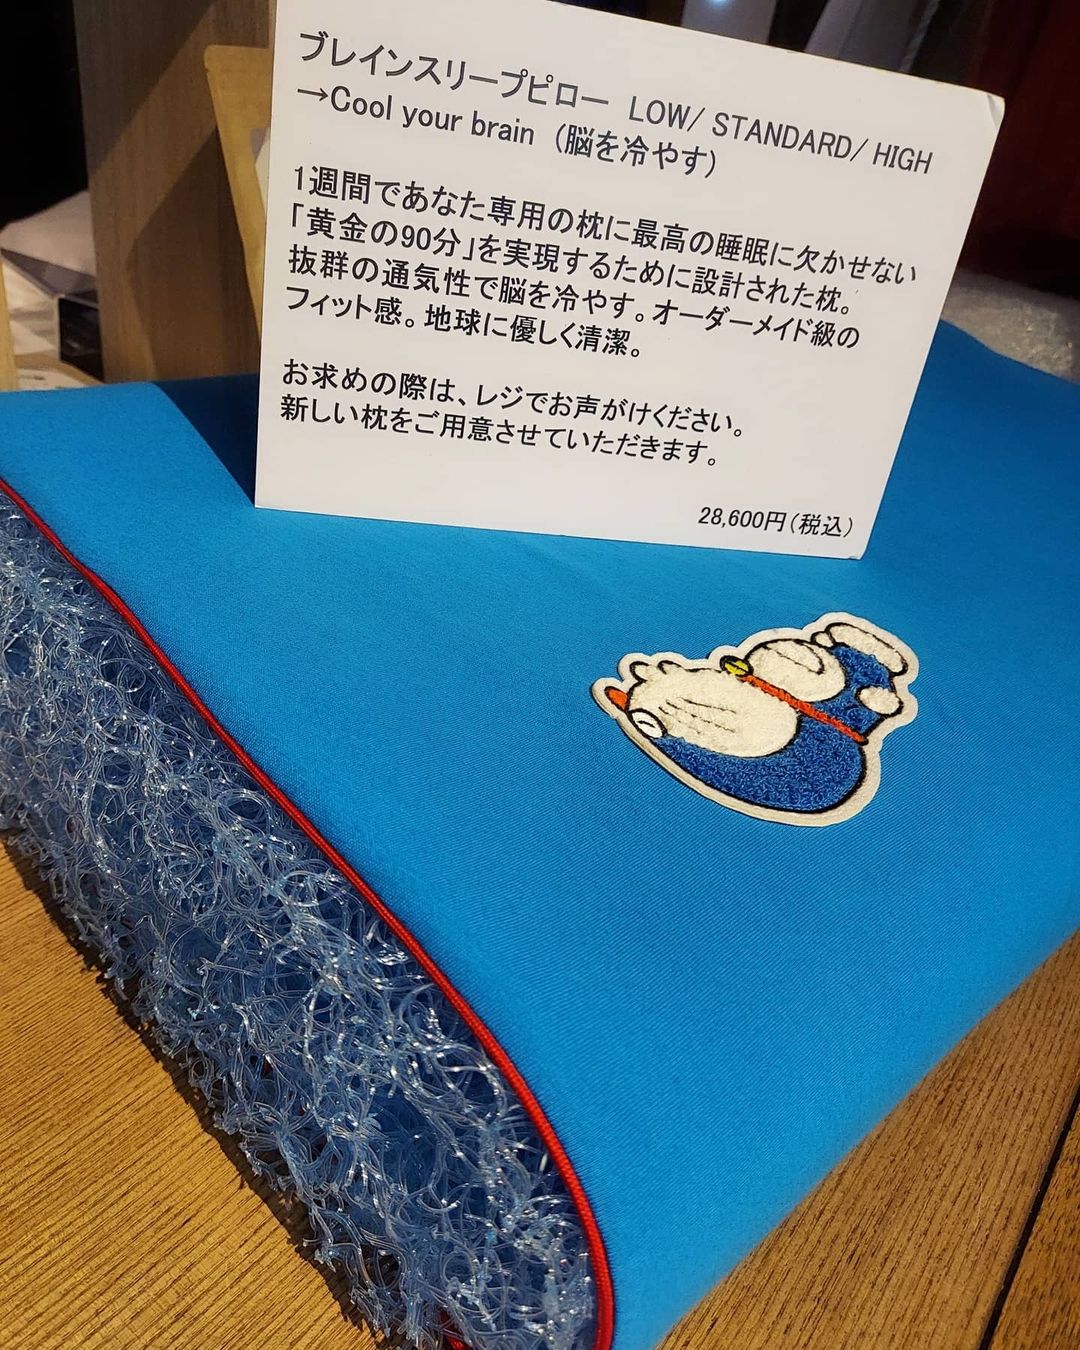 ブレインスリープピロー LOW/ STANDARD/ HIGH
→Cool your brain（脳を冷やす）
1週間であなた専用の枕に最高の睡眠に欠かせない
「黄金の90分」を実現するために設計された枕。
抜群の通気性で脳を冷やす。オーダーメイド級の
フィット感。地球に優しく清潔。
お求めの際は、レジでお声がけください。
新しい枕をご用意させていただきます。
28,600円（税込）